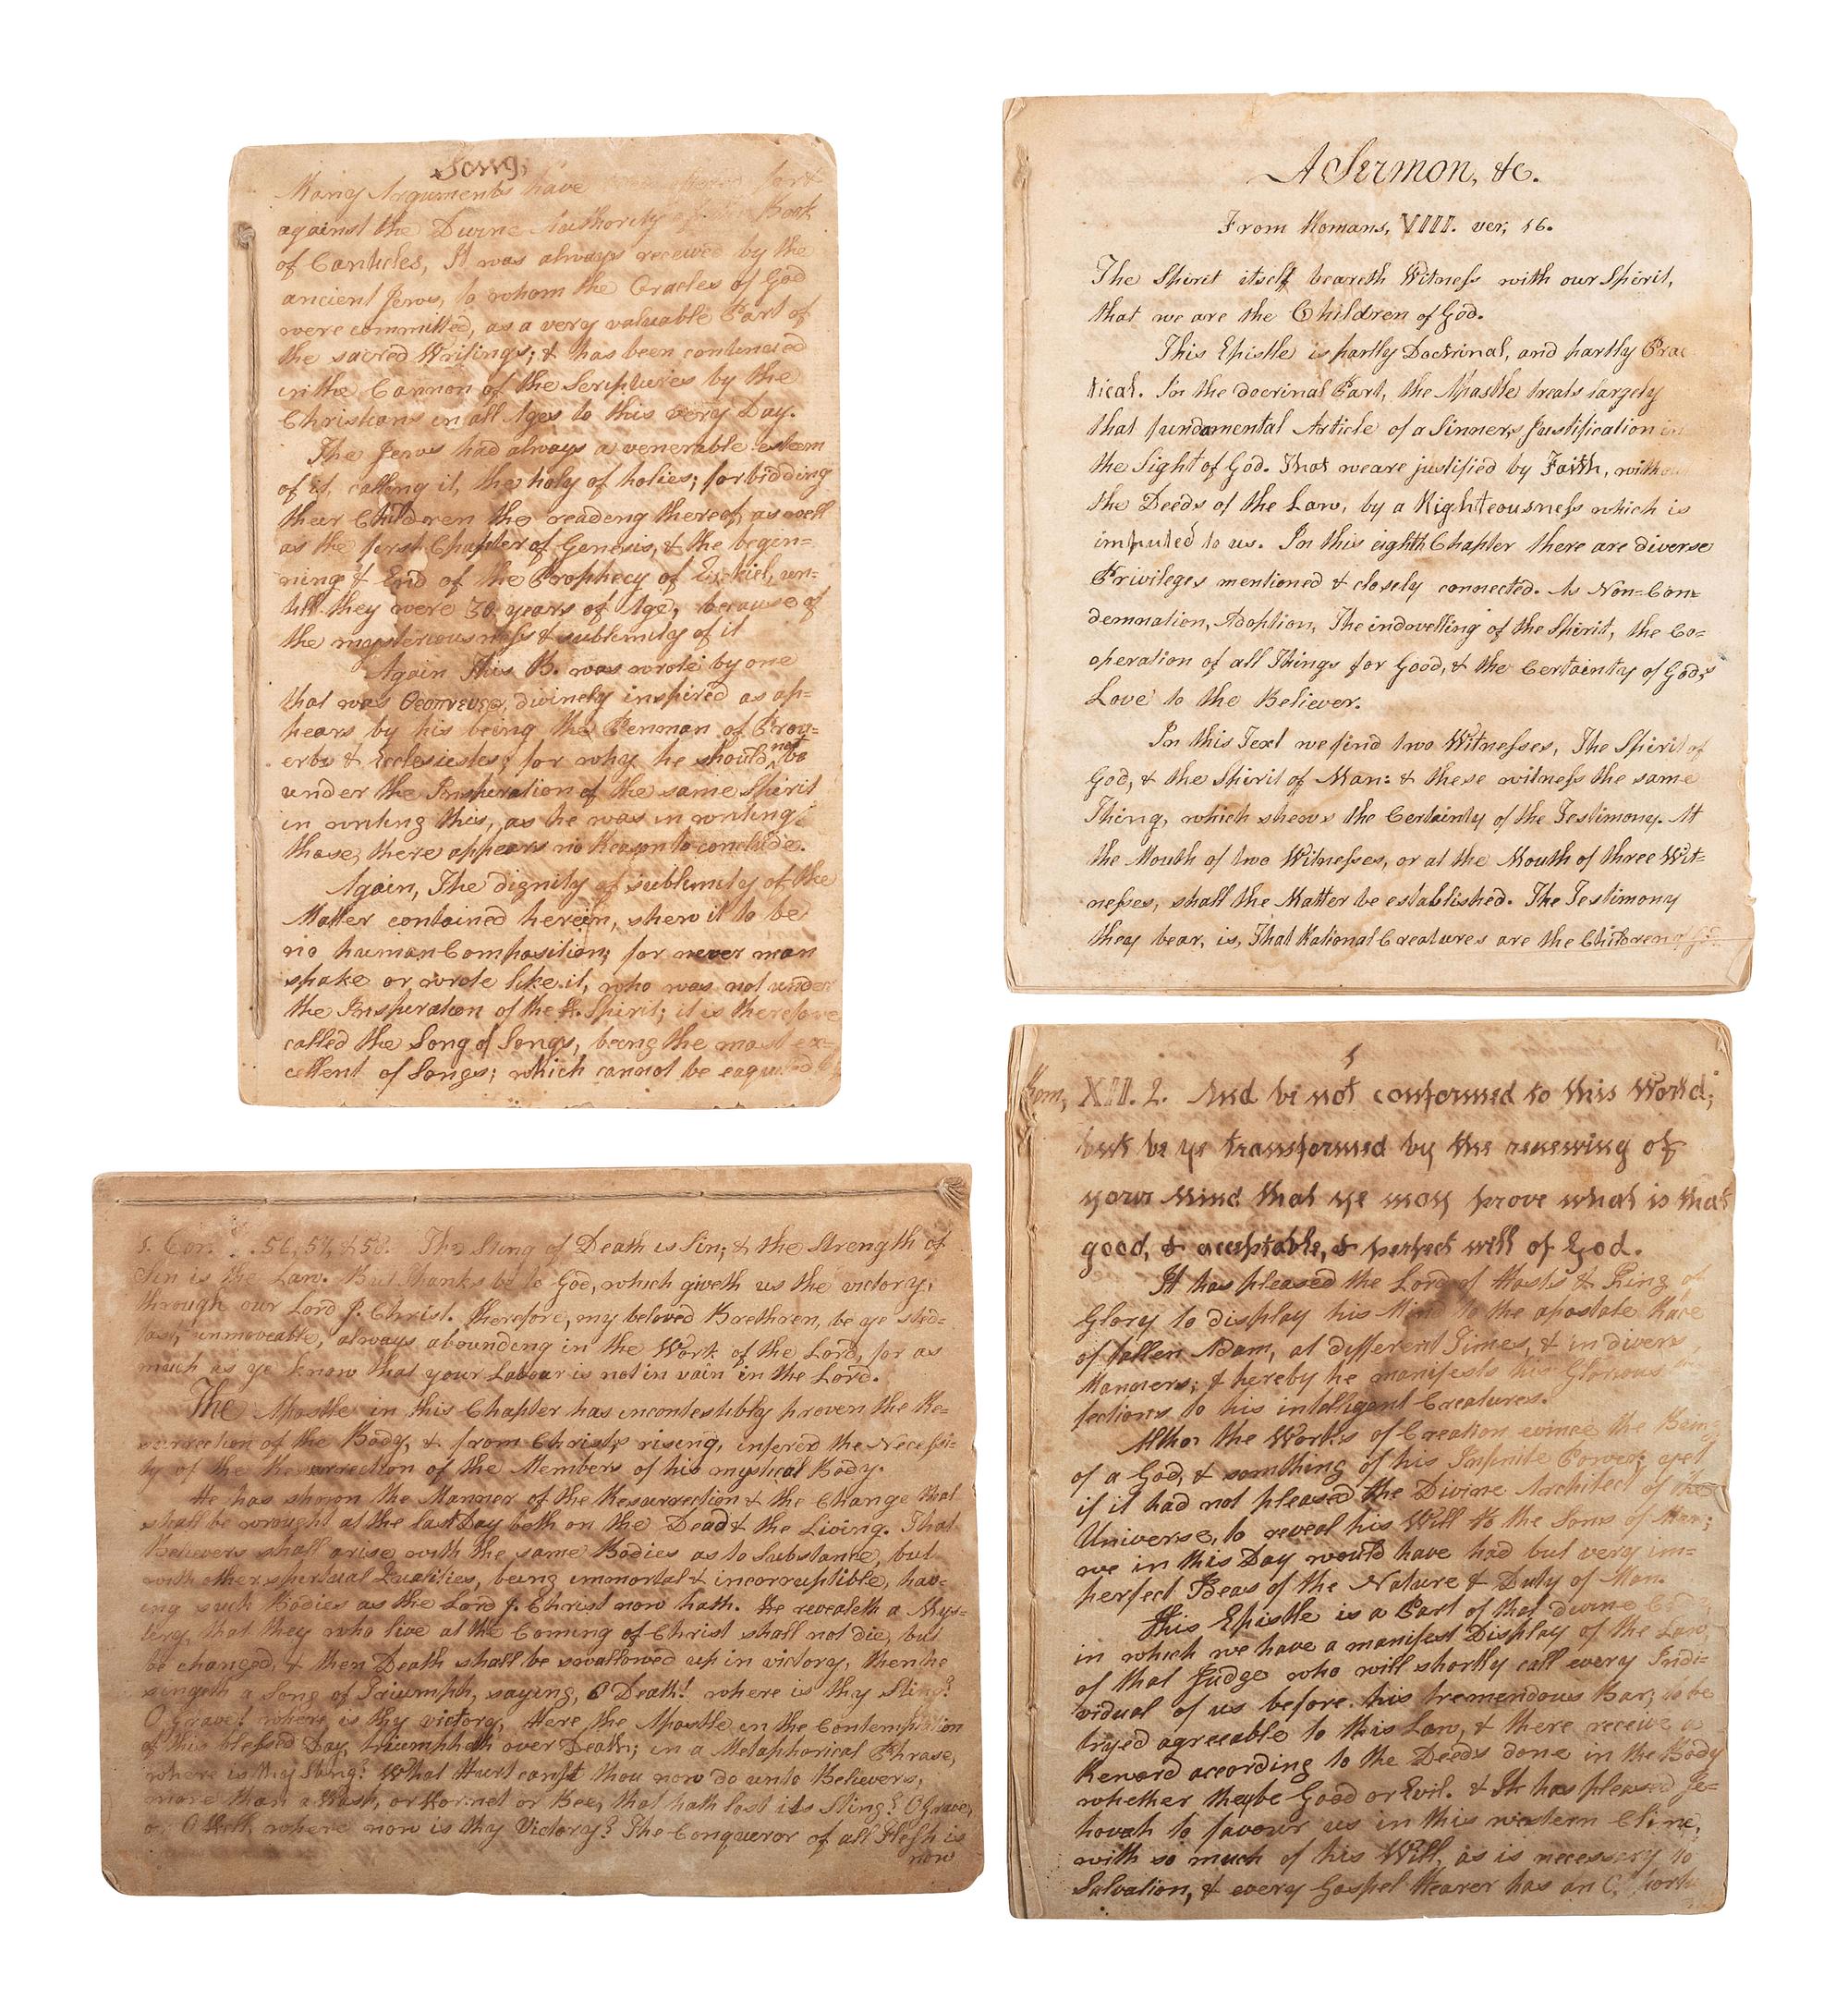 Song,
Many Arguments have
against the Divine Authority of this Book
of Canticles, It was always received by the
ancient Jews, to whom the Oracles of God
were committed, as a very valuable Part of
the sacred Writings; & has been continued
in the Cannon of the Scriptures by the
Christians in all Ages to this very Day.
The Jews had always a venerable esteem
of it, calling it, the holy of holies; forbidding
their Children the reading thereof, as well
as the first Chapter of Genesis, & the begin=
ning & End of the Prophecy of Ezekiel, un=
till they were 30 years of Age, because of
the mysteriousness & sublimity of it
Again This B. was wrote by one
that was divinely inspired as ap=
pears by his being the Penman of Prov=
erbs & Ecclesiestes; for why he should not be
under the Inspiration of the same Spirit
in writing this, as he was in writing
those, there appears no Reason to conclude.
Again, The dignity & sublimity of the
Matter contained herein, shew it to be
no human Composition; for never man
spake or wrote like it, who was not under
the Inspiration of the H. Spirit; it is therefore
called the Song of Songs, being the most ex=
cellent of Songs; which cannot be
A Sermon, &c.
From Romans, VIII. ver, 16.
The Spirit itself beareth Witness with our Spirit,
that we are the Children of God.
This Epistle is partly Doctrinal, and partly Prac
tical. In the docrinal Part, the Apostle treats largely
that fundamental Article of a Sinners Justification in
the Sight of God. That we are justified by Faith, without
the Deeds of the Law, by a Righteousness which is
imputed to us. In this eighth Chapter there are diverse
Privileges mentioned & closely connected. As Non=Con=
demnation, Adoption, The indwelling of the Spirit, the Co=
operation of all Things for Good, & the Certainty of Gods
Love to the Believer.
In this Text we find two Witnesses, The Spirit of
God, & the Spirit of Man: & these witness the same
Thing, which shews the Certainty of the Testimony. At
the Mouth of two Witnesses, or at the Mouth of three Wit=
nesses, shall the Matter be established. The Testimony
they bear, is, That Rational Creatures are the Children of God
1. Cor. 56, 57, & 58. The Sting of Death is Sin; & the Strength of
Sin is the Law. But Thanks be to God, which giveth us the victory,
through our Lord J. Christ. Therefore, my beloved Brethren, be ye sted=
fast, unmoveable, always abounding in the Work of the Lord, for as
much as ye know that your Labour is not in vain in the Lord.
The Apostle in this Chapter has incontestibly proven the Re=
surrection of the Body, & from Christs rising, infered the Necessi=
ty of the Resurrection of the Members of his mystical Body.
He has shown the Manner of the Resurrection & the Change that
shall be wrought at the last Day both on the Dead & the Living. That
Believers shall arise with the same Bodies as to Substance, but
with other spiritual Qualities, being immortal & incorruptible, hav=
ing such Bodies as the Lord J. Christ now hath. He revealeth a Mys=
tery, that they who live at the Coming of Christ shall not die, but
be changed, & then Death shall be swallowed up in victory, then he
singeth a Song of Triumph, saying, O Death! where is thy Sting?
O Grave! where is thy victory, Here the Apostle in the Contemplation
of this blessed Day, triumpheth over Death; in a Metaphorical Phrase,
where is thy Sting? What Hurt canst thou now do unto Believers,
more than a Wasp, or Hornet or Bee, that hath lost its Sting? O Grave,
or O Hell, where now is thy Victory? The Conqueror of all Flesh is
now
1
Rom, XII. 2. And be not conformed to this World;
but be ye transformed by the renewing of
your Mind that ye may prove what is that
good, & acceptable, & perfect will of God.
It has pleased the Lord of Hosts & King of
Glory to display his Mind to the apostate Race
of fallen Adam, at different Times, & in divers
Manners; & hereby he manifests his Glorious
fections to his intelligent Creatures.
Altho the Works of Creation evince the Being
of a God, & somthing of his Infinite Power; yet
if it had not pleased the Divine Architect of the
Universe, to reveal his Will to the Sons of Men;
we in this Day would have had but very im=
perfect Ideas of the Nature & Duty of Man.
This Epistle is a Part of that divine
in which we have a manifest Display of the Law
of that Judge who will shortly call every Indi=
vidual of us before his tremendous Bar, to be
tryed agreeable to this Law, & there receive a
Reward according to the Deeds done in the Body
whether they be Good or Evil. & It has pleased Je=
hovah to favour us in this western Clime,
with so much of his Will, as is necessary to
Salvation, & every Gospel Hearer has an